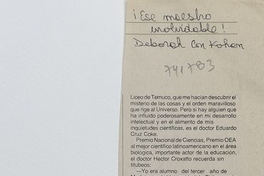 ¡Ese maestro
inolvidable!
Deborah Con Kohan
741783
Liceo de Temuco, que me hacían descubrir el
misterio de las cosas y el orden maravilloso
que rige al Universo. Pero si hay alguien que
ha influido poderosamente en mi desarrollo
intelectual y en el alimento de mis
inquietudes científicas, es el doctor Eduardo
Cruz Coke.
Premio Nacional de Ciencias, Premio OEA
al mejor científico latinoamericano en el área
biológica, importante actor de la educación,
el doctor Héctor Croxatto recuerda sin
titubeos:
—Yo era alumno del tercer año de